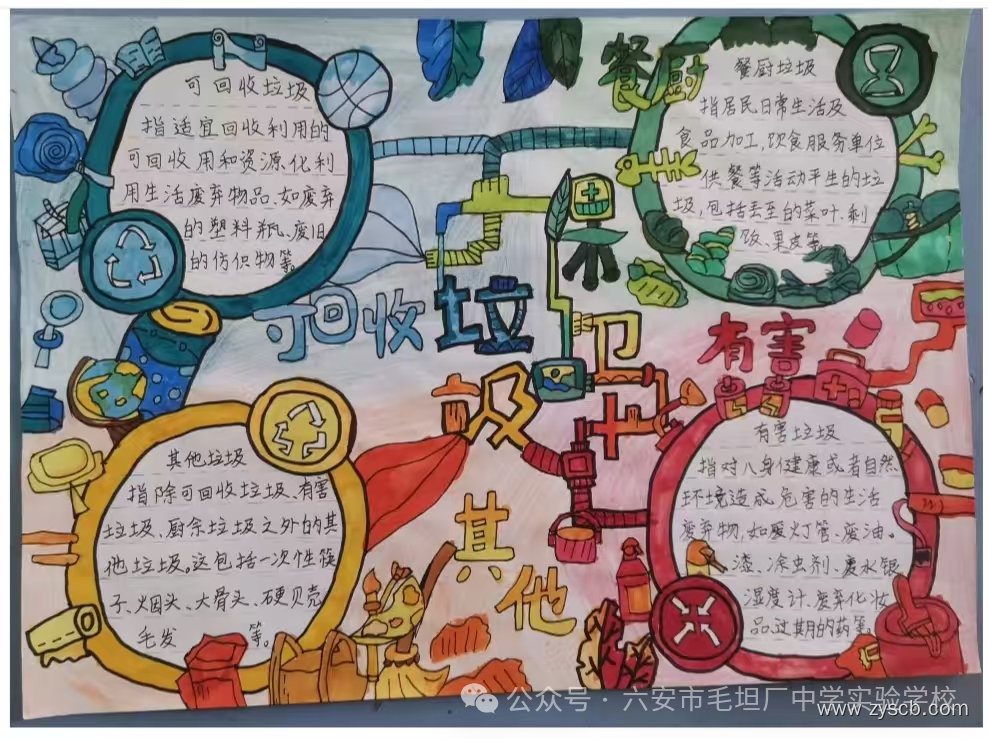 可回收垃圾
指适宜回收利用的
可回收用和资源化利
用生活废弃物品、如废弃
的塑料瓶、废旧
的仿织物等。
餐厨
餐厨垃圾
指居民日常生活及
食品加工,饮食服务单位
供餐等活动平生的垃
圾,包括丢至的菜叶、剩
饭、果皮等
可回收垃
圾
桶
卫士
有害
其他
其他垃圾
指除可回收垃圾、有害
垃圾、厨余垃圾之外的其
他垃圾。这包括一次性筷
子、烟头、大骨头、硬贝壳
毛发 等。
有害垃圾
指对人身健康或者自然
环境造成危害的生活
废弃物,如废灯管、废油。
漆、杀虫剂、废水银
温度计、废弃化妆
品、过期的药等。
公众号·六安市毛坦厂中学实验学校
www.zyscb.com